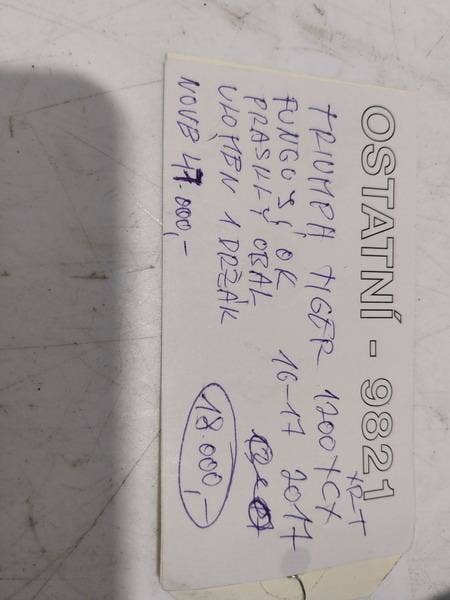 OSTATNÍ - 9821
XRT
TRIUMPH TIGER 1200 XCX
FUNGUJÍ OK 16-17 2017
PRASKLÝ OBAL
ULOMEN 1 DRŽÁK
NOVÉ 47.000,-
18.000,-